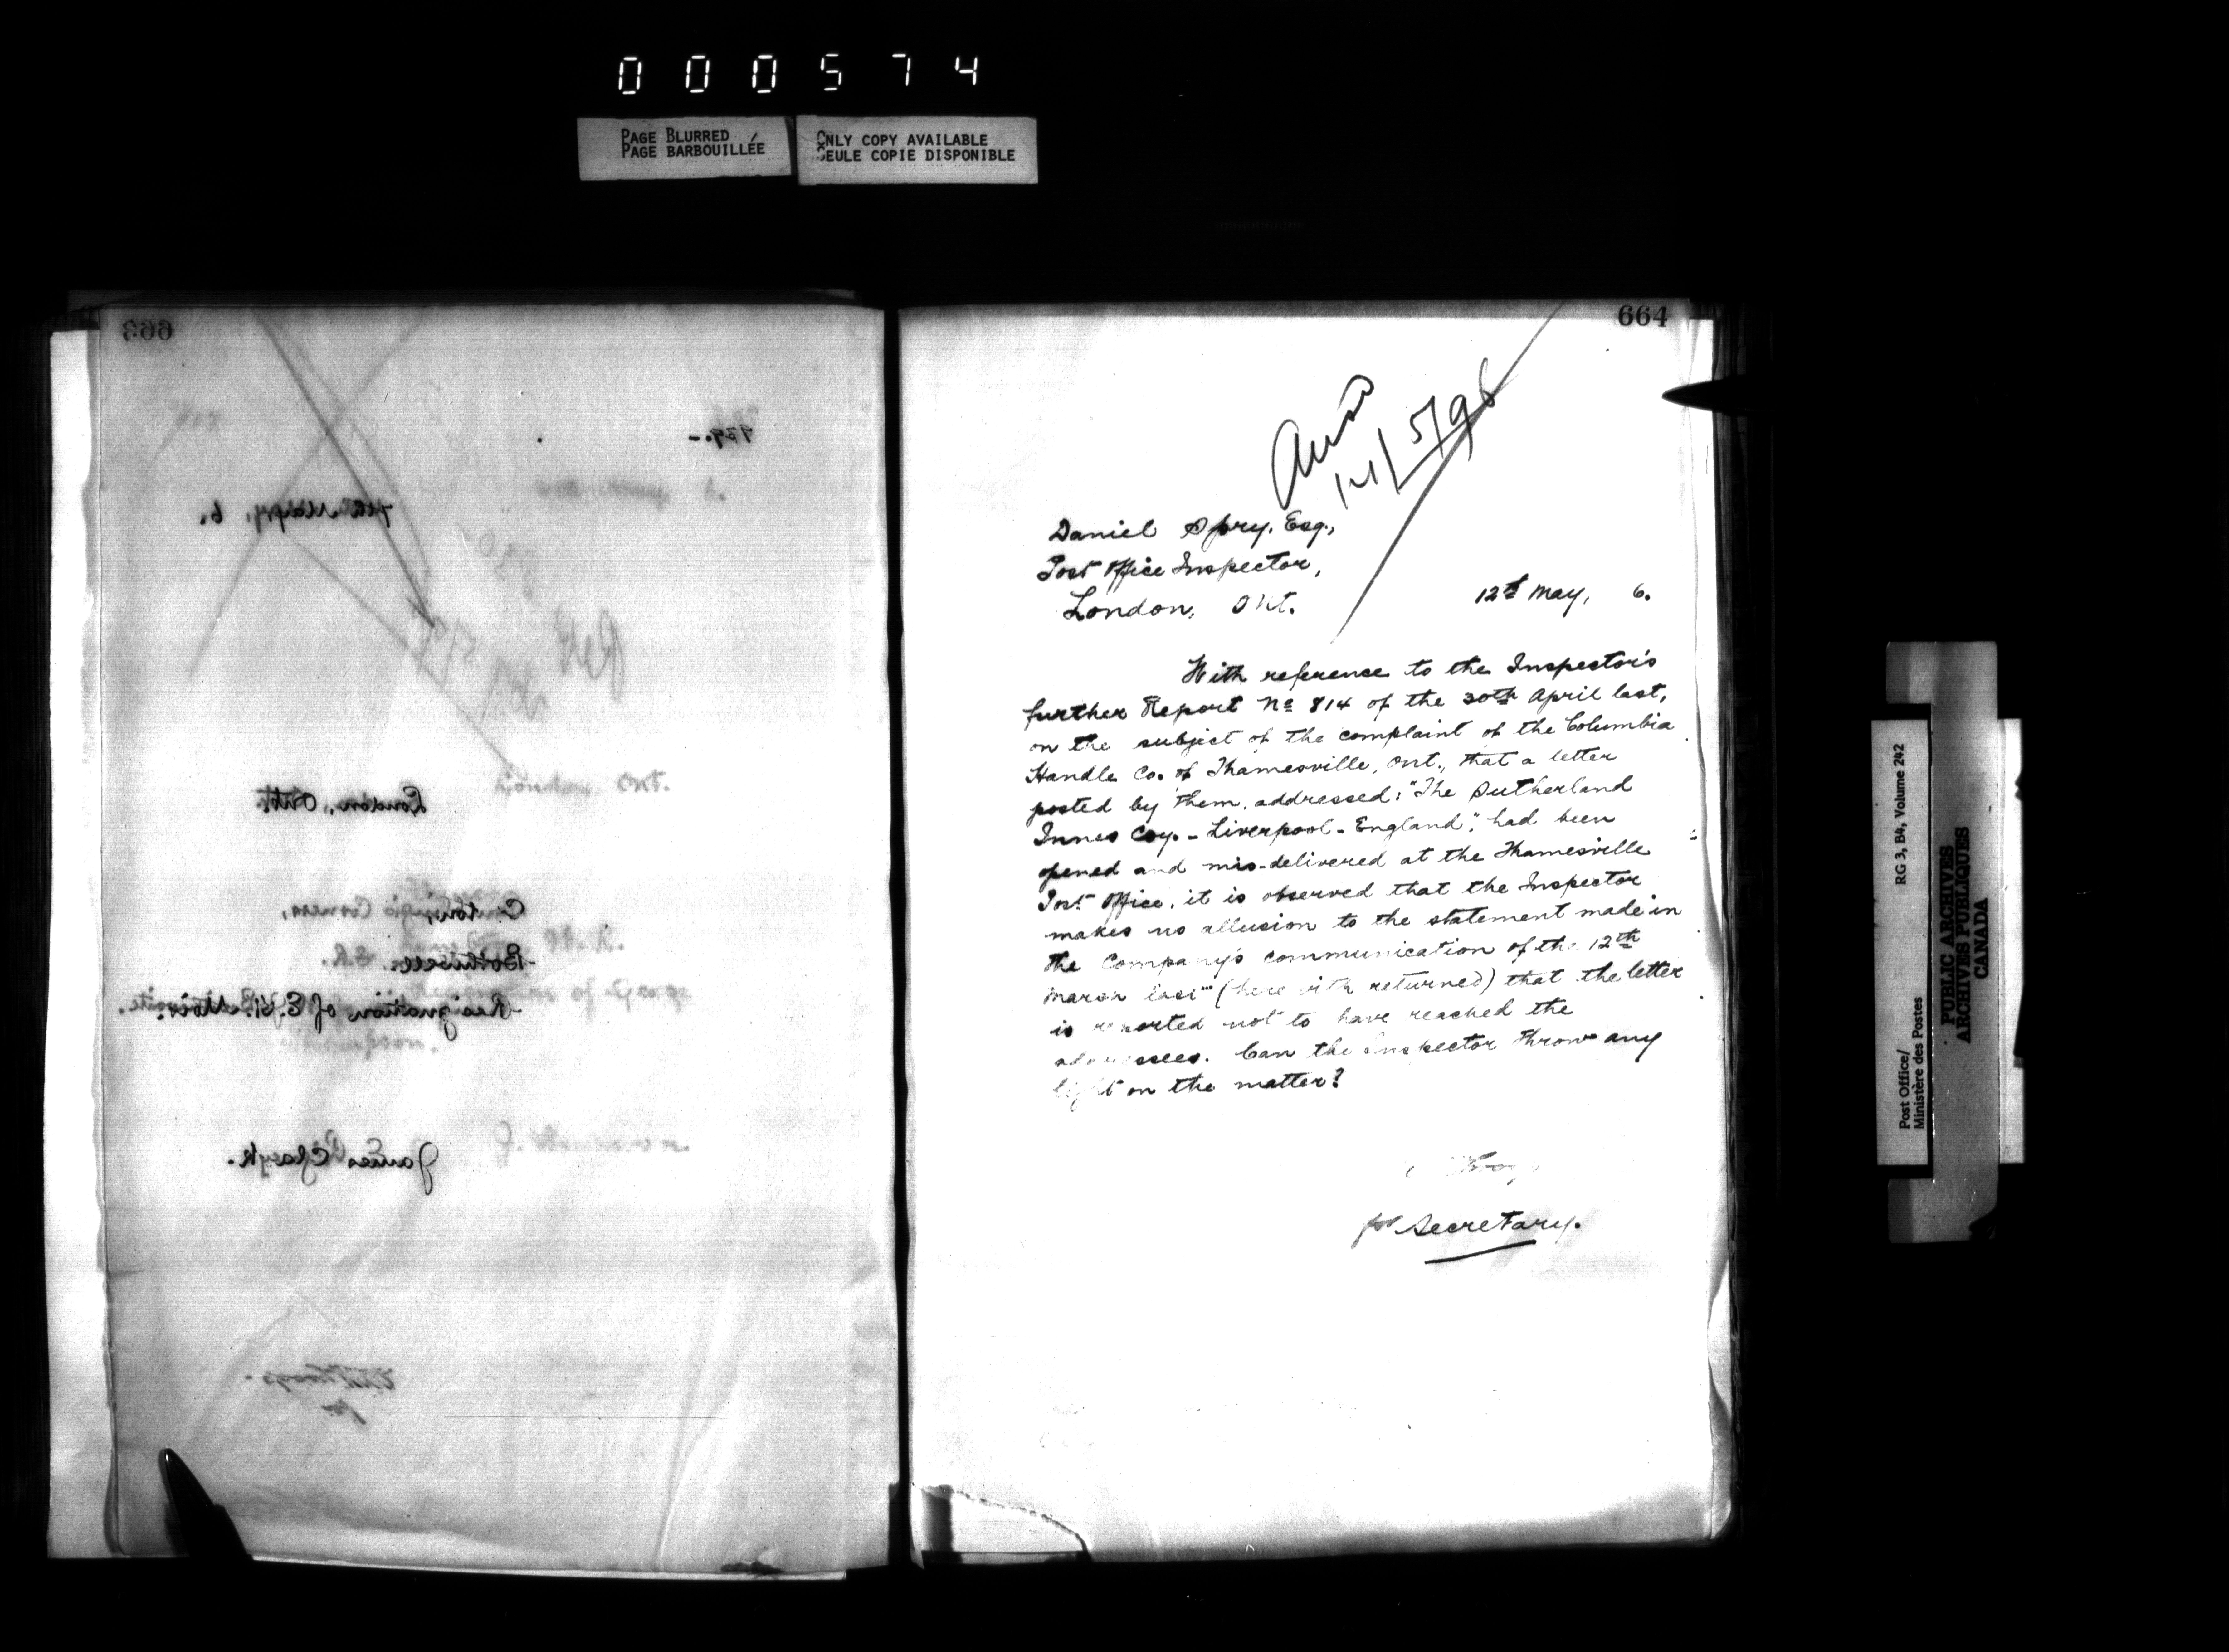 000574
PAGE BLURRED
PAGE BARBOUILLÉE
ONLY COPY AVAILABLE
SEULE COPIE DISPONIBLE
663
London, Ont.
Bothwell. S.R.
Resignation of E.
James
664
Ansd
5/96
Daniel Spry, Esq.,
Post Office Inspector,
London, Ont.
12th May, 6.
With reference to the Inspector's
further Report No 814 of the 30th April last,
on the subject of the complaint of the Columbia
Handle Co. of Thamesville, Ont., that a letter
posted by them, addressed: "The Sutherland
Innes Coy. - Liverpool - England", had been
opened and mis-delivered at the Thamesville
Post Office, it is observed that the Inspector
makes no allusion to the statement made in
the Company's communication of the 12th
March last (herewith returned) that the letter
is reported not to have reached the
addressees. Can the Inspector throw any
light on the matter?
for Secretary.
Post Office/
Ministère des Postes
RG 3, B4, Volume 242
PUBLIC ARCHIVES
ARCHIVES PUBLIQUES
CANADA